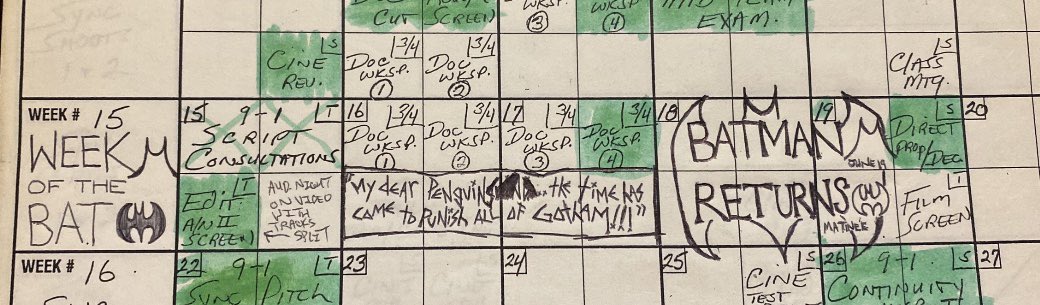 CUT
SCREEN
WKSP.
③
WKSP.
④
MID TERM
EXAM.
S
CINE
REV.
3/4
DOC
WKSP.
①
3/4
DOC
WKSP.
②
S
CLASS
MTG.
WEEK # 15
WEEK
OF THE
BAT
15 9-1 T
SCRIPT
CONSULTATIONS
T
EDIT
A/N II
SCREEN
AUD. NIGHT
ON VIDEO
WITH
TRACKS
SPLIT
16 3/4
DOC
WKSP.
①
3/4
DOC
WKSP.
②
17 3/4
DOC
WKSP.
③
3/4
DOC
WKSP.
④
"MY DEAR PENGUINS... THE TIME HAS
COME TO PUNISH ALL OF GOTHAM!!!"
18
BATMAN
JUNE 19
RETURNS
MATINEE
19 S
DIRECT
PROP/DEC
T
FILM
SCREEN
20
WEEK # 16
22 9-1 T
SYNC PITCH
23
24
25
S
CINE
TEST
26 9-1 S
CONTINUITY
27